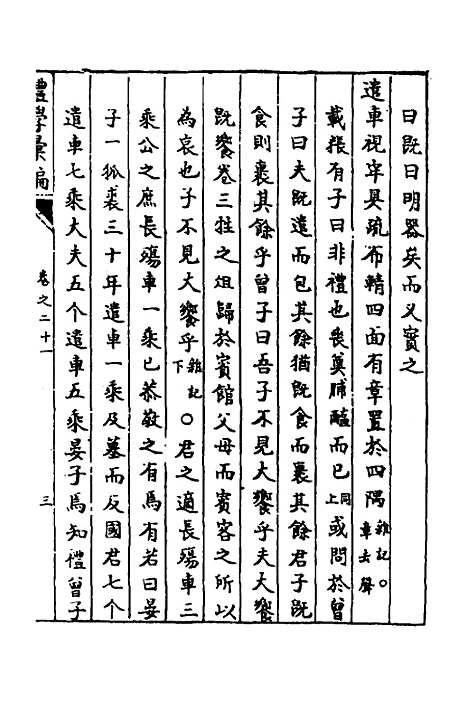 曰既曰明器矣而又實之
遣車視牢具疏布輤四面有章置於四隅雜記○章去聲
載粻有子曰非禮也喪奠脯醢而已同上或問於曾
子曰夫既遣而包其餘猶既食而裹其餘君子既
食則裹其餘乎曾子曰吾子不見大饗乎夫大饗
既饗卷三牲之俎歸於賓館父母而賓客之所以
為哀也子不見大饗乎雜記下○君之適長殤車三
乘公之庶長殤車一乘已恭敬之有焉有若曰晏
子一狐裘三十年遣車一乘及墓而反國君七个
遣車七乘大夫五个遣車五乘晏子焉知禮曾子
禮學彙編
卷之二十一
三